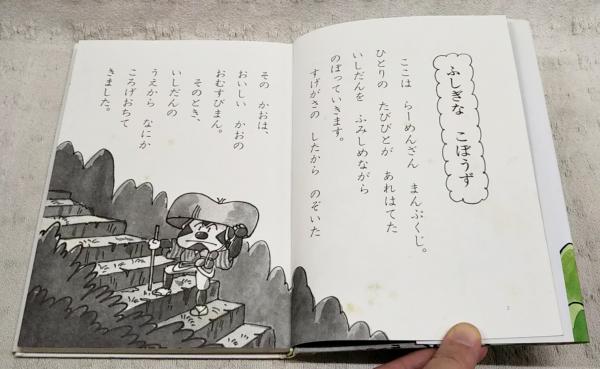 ふしぎな　こぼうず
ここは　らーめんざん　まんぷくじ。
ひとりの　たびびとが　あれはてた
いしだんを　ふみしめながら
のぼっていきます。
すげがさの　したから　のぞいた
その　かおは、
おいしい　かおの
おむすびまん。
そのとき、
いしだんの
うえから　なにか
ころげおちて
きました。
2